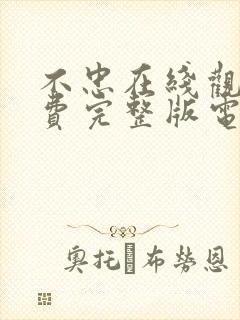 不忠在綫觀
費完整版電
奧托 布勞恩